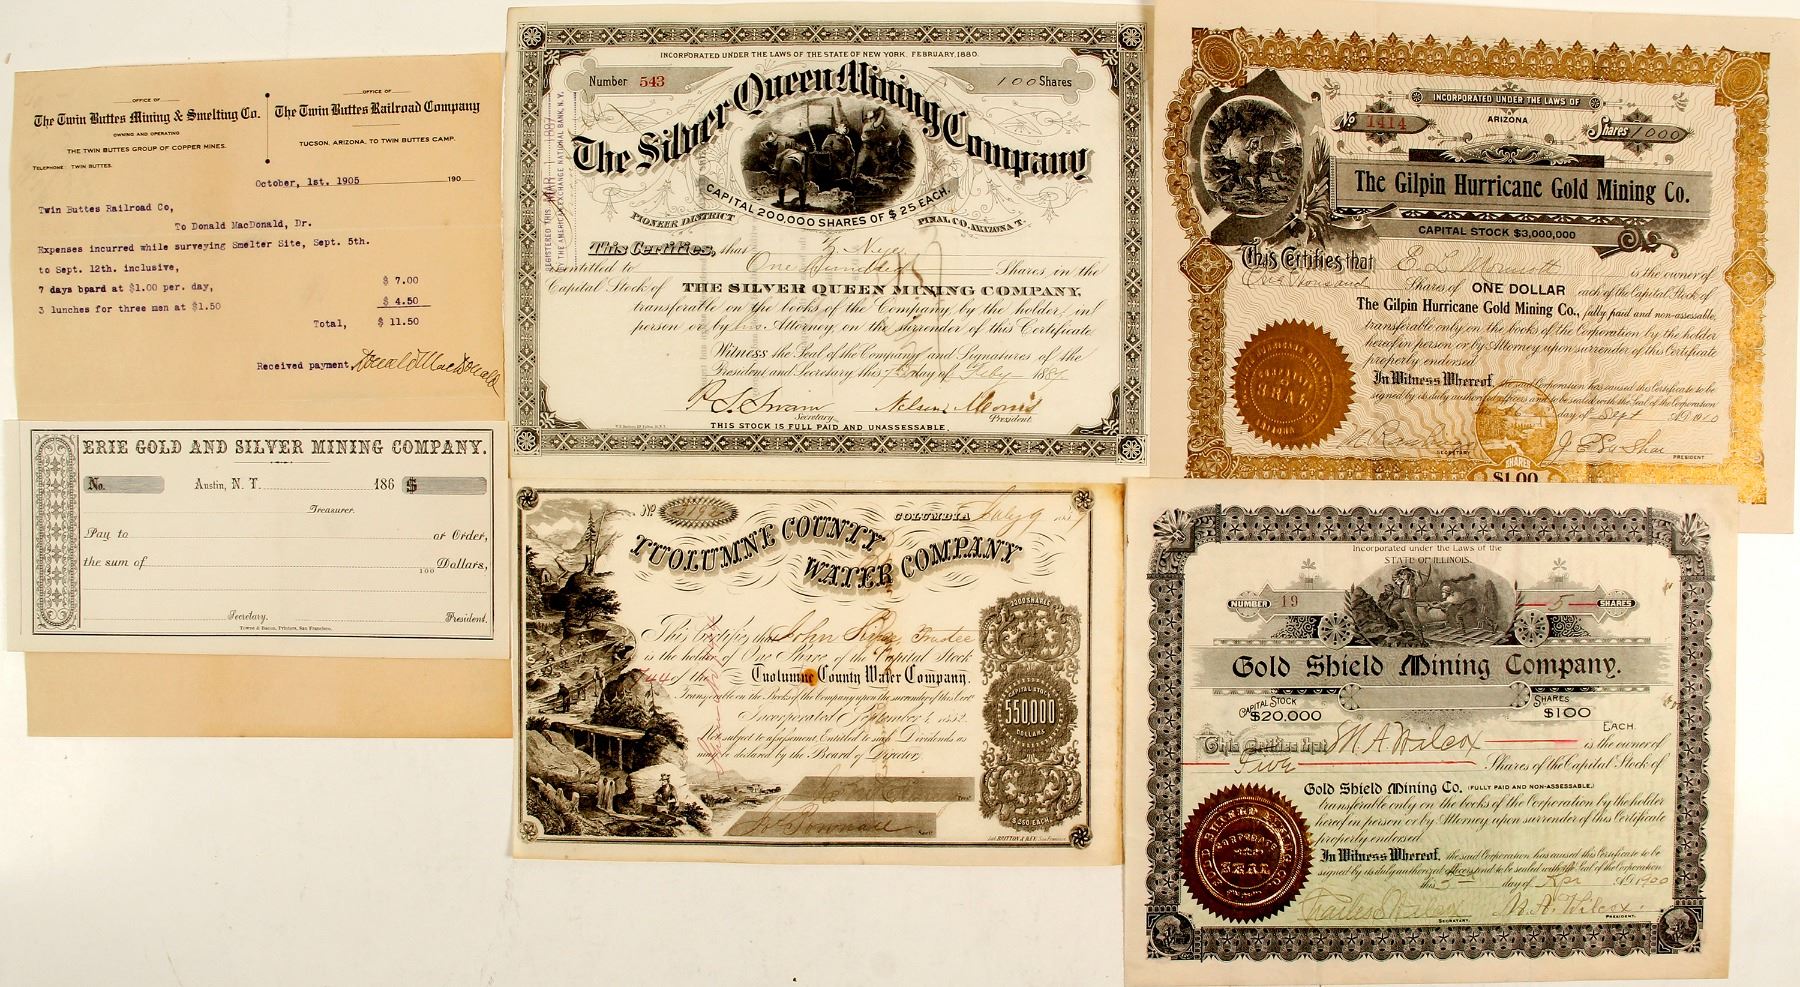 OFFICE OF
The Twin Buttes Mining & Smelting Co.
OWNING AND OPERATING
THE TWIN BUTTES GROUP OF COPPER MINES.
TELEPHONE: TWIN BUTTES.
OFFICE OF
The Twin Buttes Railroad Company
TUCSON, ARIZONA, TO TWIN BUTTES CAMP.
October, 1st. 1905 190
Twin Buttes Railroad Co,
To Donald MacDonald, Dr.
Expenses incurred while surveying Smelter Site, Sept. 5th.
to Sept. 12th. inclusive,
7 days board at $1.00 per. day, $ 7.00
3 lunches for three men at $1.50 $ 4.50
Total, $ 11.50
Received payment, Donald MacDonald
ERIE GOLD AND SILVER MINING COMPANY.
No. Austin, N. T. 186 $
Treasurer.
Pay to or Order,
the sum of 100 Dollars,
Secretary. President.
Towne & Bacon, Printers, San Francisco.
INCORPORATED UNDER THE LAWS OF THE STATE OF NEW YORK. FEBRUARY, 1880.
Number 543 100 Shares
The Silver Queen Mining Company
CAPITAL 200,000 SHARES OF $25 EACH.
PIONEER DISTRICT PINAL CO. ARIZONA T.
REGISTERED THIS
BY THE AMERICAN EXCHANGE NATIONAL BANK, N.Y.
This Certifies, that
is entitled to One Hundred Shares, in the
Capital Stock of THE SILVER QUEEN MINING COMPANY,
transferable on the books of the Company, by the holder, in
person or by his Attorney, on the surrender of this Certificate
Witness the Seal of the Company and Signatures of the
President and Secretary this 7th day of Feby 188
Secretary. President.
THIS STOCK IS FULL PAID AND UNASSESSABLE.
INCORPORATED UNDER THE LAWS OF
ARIZONA
No 1414 Shares 1000
The Gilpin Hurricane Gold Mining Co.
CAPITAL STOCK $3,000,000
This Certifies that E. L. is the owner of
One thousand Shares of ONE DOLLAR each of the Capital Stock of
The Gilpin Hurricane Gold Mining Co., fully paid and non-assessable,
transferable only on the books of the Corporation by the holder
hereof in person or by Attorney upon surrender of this Certificate
properly endorsed.
In Witness Whereof, the said Corporation has caused this Certificate to be
signed by its duly authorized officers and to be sealed with the Seal of the Corporation
day of Sept A.D. 1910
SECRETARY PRESIDENT
SHARES
$1.00
SEAL
No COLUMBIA July 9
TUOLUMNE COUNTY
WATER COMPANY
This Certifies that John Trustee
is the holder of One Share of the Capital Stock
of the Tuolumne County Water Company.
Transferable on the Books of the Company upon the surrender of this Cert.
Incorporated September 4, 1852.
Not subject to assessment. Entitled to such Dividends as
may be declared by the Board of Directors
2200 SHARES
CAPITAL STOCK
550000
DOLLARS
$250 EACH.
Lith. BRITTON & REY, San Francisco
Incorporated under the Laws of the
STATE OF ILLINOIS.
NUMBER 19 5 SHARES
Gold Shield Mining Company.
CAPITAL STOCK $20,000 SHARES $100 EACH.
This Certifies that M. A. Wilcox is the owner of
Five Shares of the Capital Stock of
Gold Shield Mining Co. (FULLY PAID AND NON-ASSESSABLE,)
transferable only on the books of the Corporation by the holder
hereof in person or by Attorney upon surrender of this Certificate
properly endorsed.
In Witness Whereof, the said Corporation has caused this Certificate to be
signed by its duly authorized officers and to be sealed with the Seal of the Corporation
this 5 day of Apr A.D. 1900
Charles Wilcox M. A. Wilcox
SECRETARY. PRESIDENT.
GOLD SHIELD MINING CO.
CORPORATE
SEAL